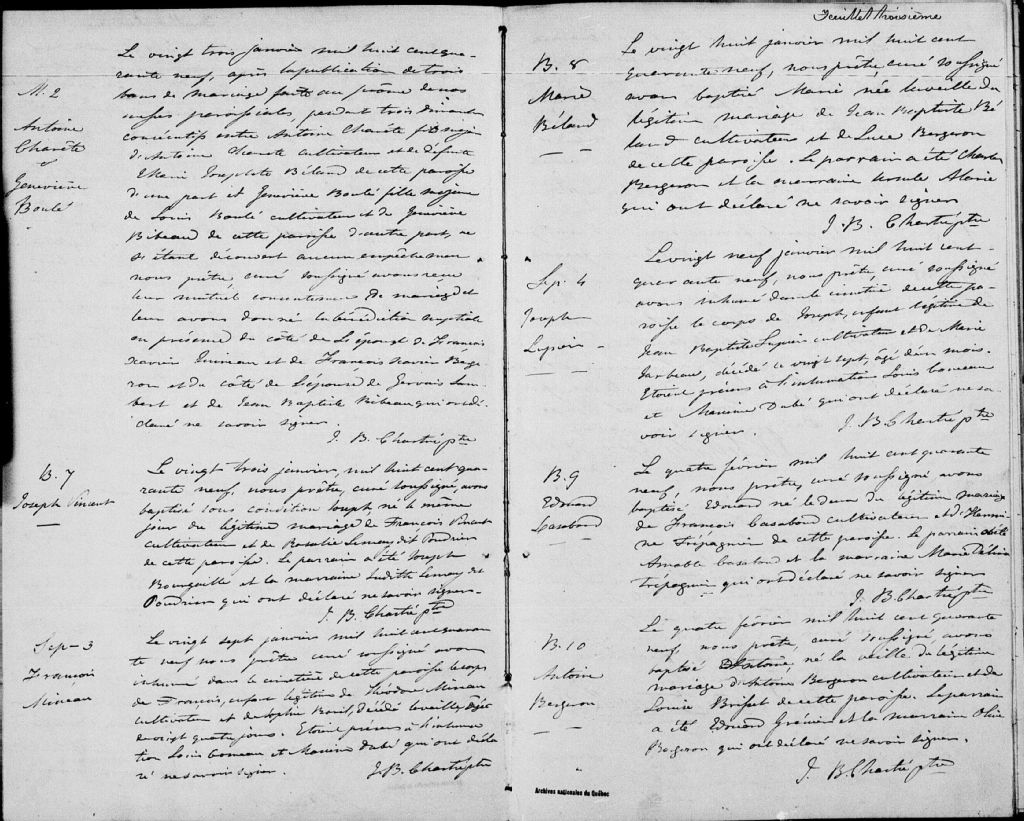 M. 2
Antoine
Charète
&
Geneviève
Boulé
Le vingt trois janvier mil huit cent qua-
rante neuf, après la publication de trois
bans de mariage faite au prône de nos
messes paroissiales, pendant trois dimanches
consécutifs entre Antoine Charète fils majeur
d'Antoine Charète cultivateur et de défunte
Marie Josephte Béland de cette paroisse
d'une part et Geneviève Boulé fille majeure
de Louis Boulé cultivateur et de Geneviève
Bibeau de cette paroisse d'autre part, ne
s'étant découvert aucun empêchement
nous prêtre, curé soussigné avons reçu
leur mutuel consentement de mariage et
leur avons donné la bénédiction nuptiale
en présence du côté de l'époux de François
Xavier et de François Xavier Berge-
ron et du côté de l'épouse de Gervais Lam-
bert et de Jean Baptiste Bibeau qui ont dé-
claré ne savoir signer.
J. B. Chartré ptre
B. 7
Joseph Vincent
Le vingt trois janvier, mil huit cent qua-
rante neuf, nous prêtre, curé soussigné, avons
baptisé sous condition Joseph, né le même
jour du légitime mariage de François Vincent
cultivateur et de Rosalie Lemay dit Poudrier
de cette paroisse. Le parrain a été Joseph
et la marraine Judith Lemay dit
Poudrier qui ont déclaré ne savoir signer.
J. B. Chartré ptre
Sep- 3
François
Mineau
Le vingt sept janvier mil huit cent quaran-
te neuf nous prêtre curé soussigné avons
inhumé dans le cimetière de cette paroisse le corps
de François, enfant légitime de Théodore Mineau
cultivateur et de Sophie décédé la veille âgé
de vingt quatre jours. Etoient présens à l'inhuma-
tion Louis et Dubé qui ont décla-
ré ne savoir signer.
J. B. Chartré ptre
Feuillet troisième
B. 8
Marie
Béland
Le vingt huit janvier mil huit cent
quarante neuf, nous prêtre, curé soussigné
avons baptisé Marie née la veille du
légitime mariage de Jean Baptiste Bé-
land cultivateur et de Luce Bergeron
de cette paroisse. Le parrain a été Charles
Bergeron et la marraine Ursule
qui ont déclaré ne savoir signer
J. B. Chartré ptre
Sep. 4
Joseph
Lupien
Le vingt neuf janvier mil huit cent
quarante neuf, nous prêtre, curé soussigné
avons inhumé dans le cimetière de cette pa-
roisse le corps de Joseph, enfant légitime de
Jean Baptiste Lupien cultivateur et de Marie
décédé le vingt sept, âgé d'un mois.
Etoient présens à l'inhumation Louis
et Dubé qui ont déclaré ne sa-
voir signer.
J. B. Chartré ptre
B. 9
Edouard
Casabond
Le quatre février mil huit cent quarante
neuf, nous prêtre, curé soussigné avons
baptisé Edouard né le deux du légitime mariage
de François Casabond cultivateur et d'Hermi-
ne Trépagnier de cette paroisse. Le parrain a été
Amable Casabond et la marraine Marie Délina
Trépagnier qui ont déclaré ne savoir signer
J. B. Chartré ptre
B. 10
Antoine
Bergeron
Le quatre février mil huit cent quarante
neuf, nous prêtre, curé soussigné, avons
baptisé Antoine, né la veille du légitime
mariage d'Antoine Bergeron cultivateur et de
Louise Brisset de cette paroisse. Le parrain
a été Edouard et la marraine Olive
Bergeron qui ont déclaré ne savoir signer.
J. B. Chartré ptre
Archives nationales du Québec